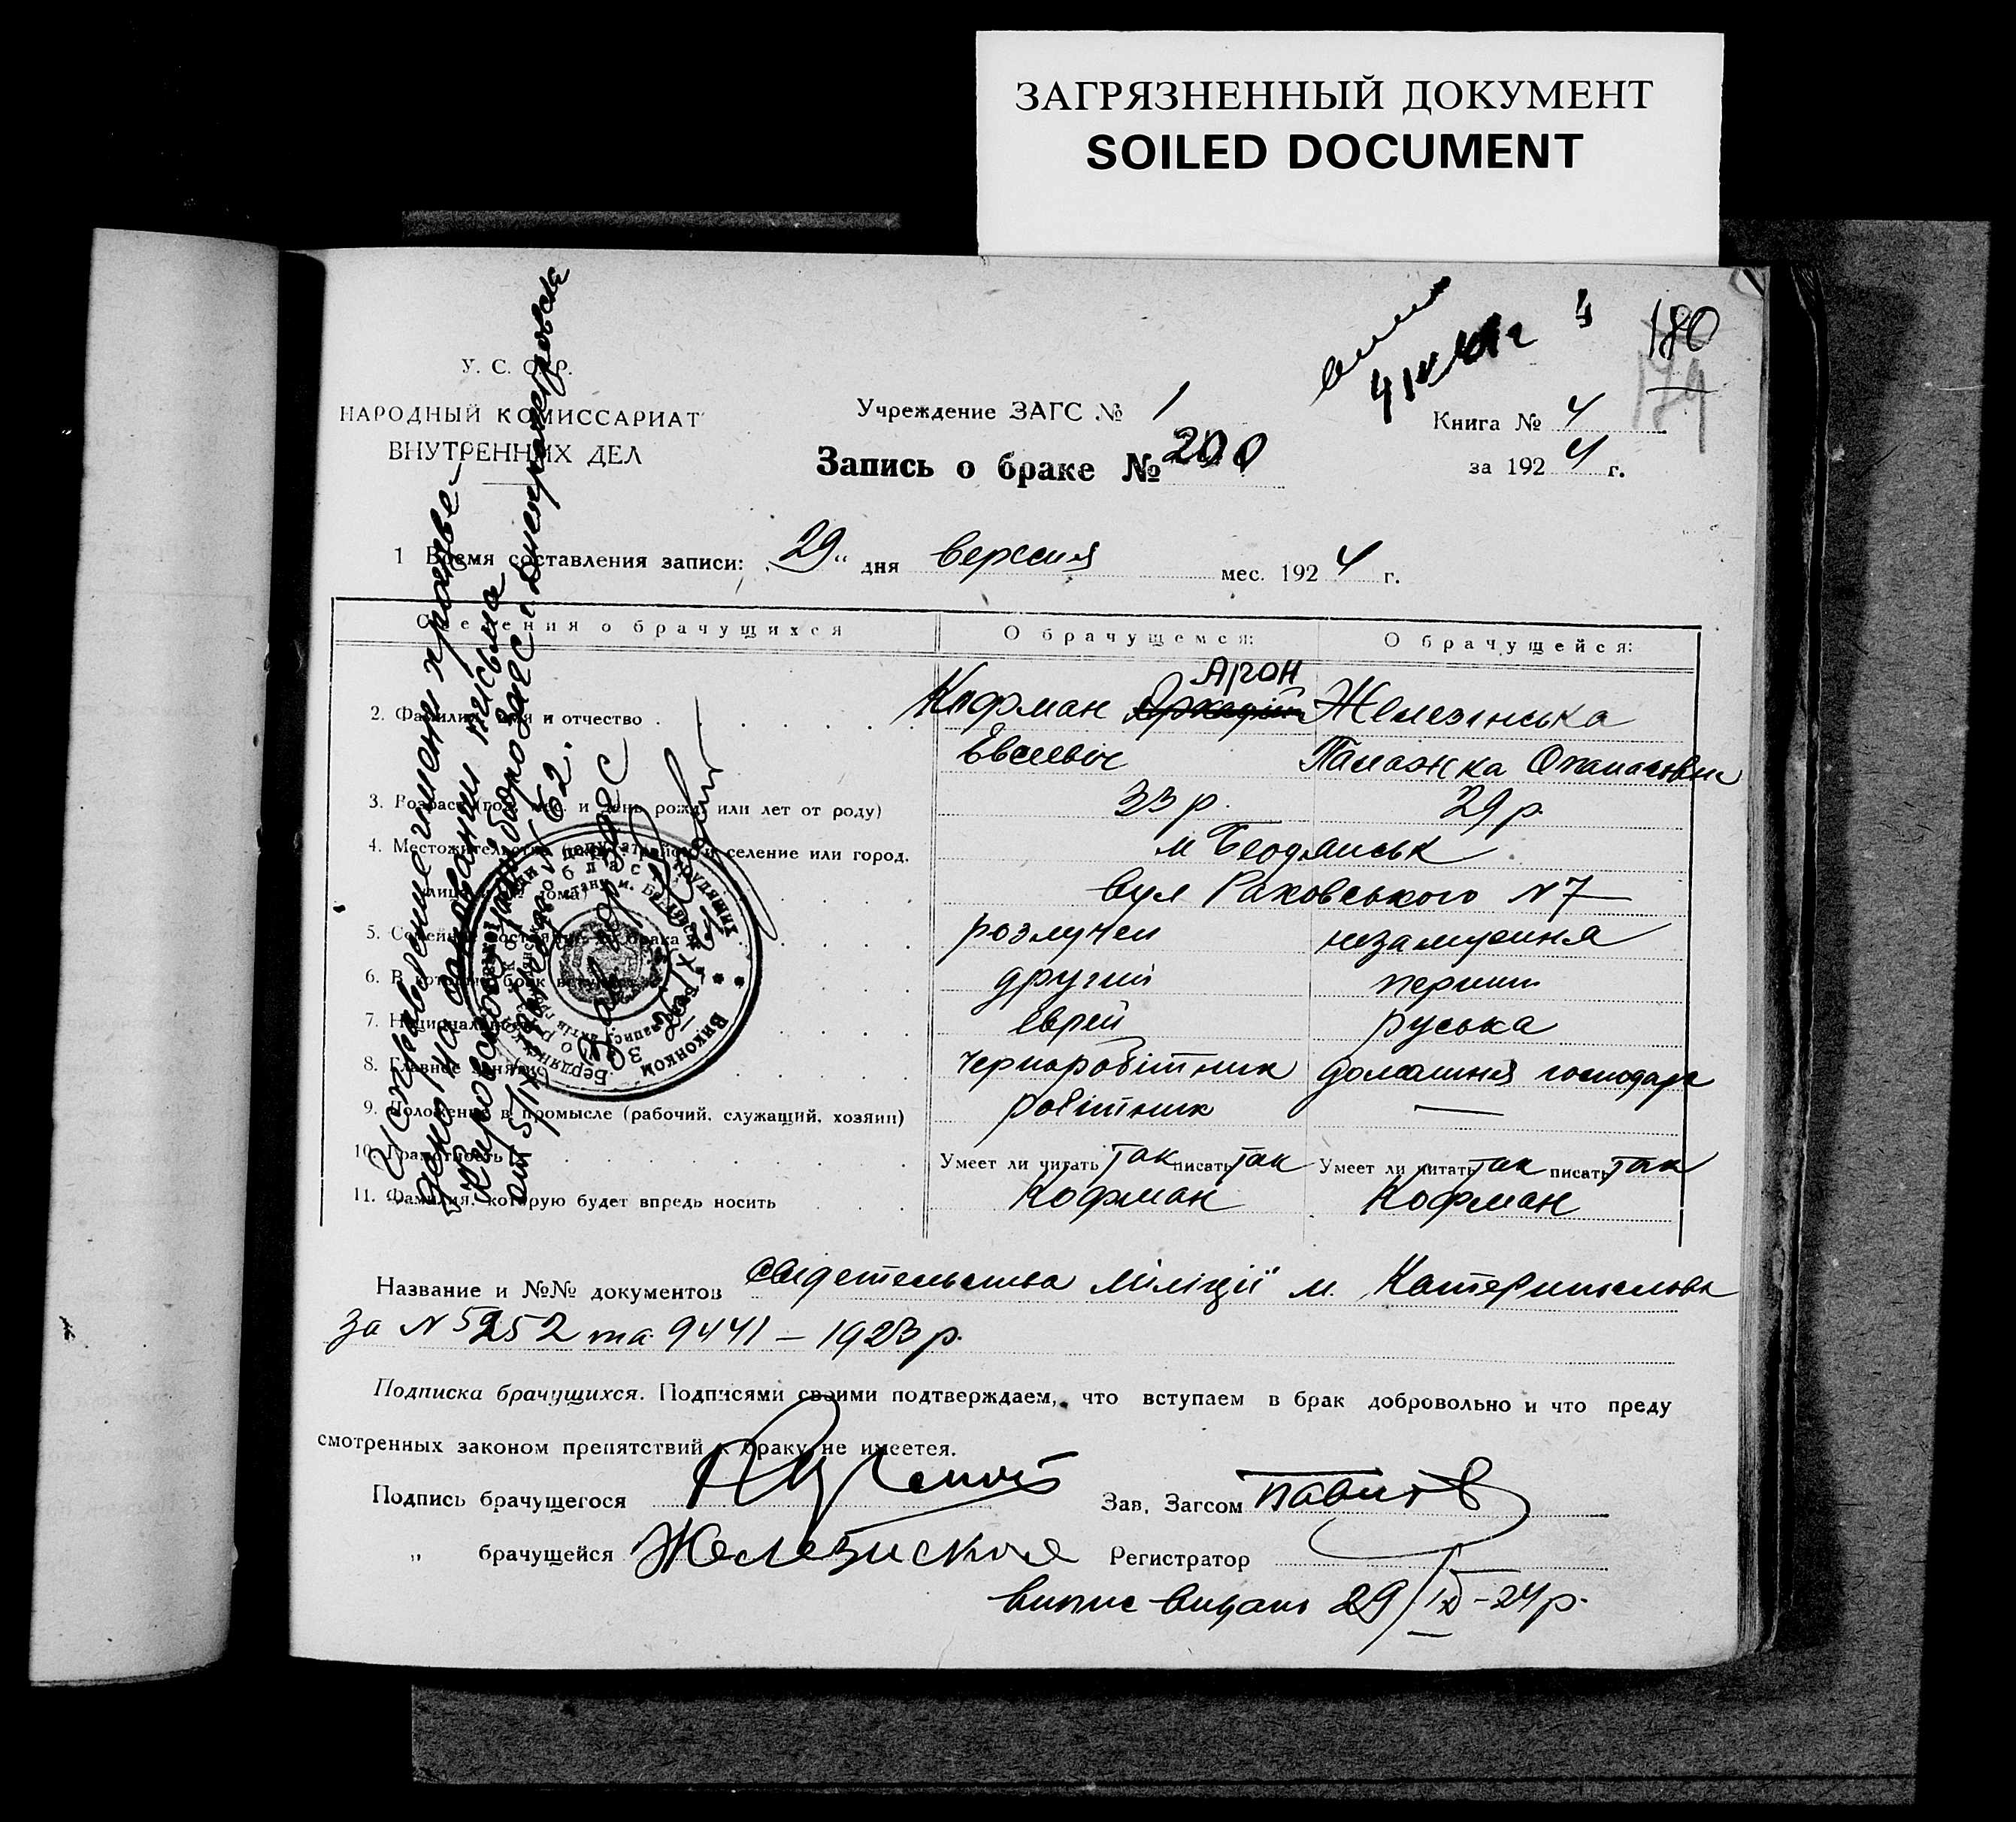 ЗАГРЯЗНЕННЫЙ ДОКУМЕНТ
SOILED DOCUMENT
180
179
У. С. С. Р.
НАРОДНЫЙ КОМИССАРИАТ
ВНУТРЕННИХ ДЕЛ
Учреждение ЗАГС № 1
Книга № 4
Запись о браке № 200
за 1924 г.
1 Время составления записи: 29 " дня вересня мес. 1924 г.
Сведения о брачущихся О брачущемся: О брачущейся:
Арон
2. Фамилия, имя и отчество Кофман Аркадій Железінська
Евсеевич Палажка Опанасовна
3. Возраст (год, мес. и день рожд. или лет от роду) 33 р. 29 р.
4. Местожительство селение или город, м Бердянськ
вул Раковського N 7
5. Семейное состояние до брака розлучен незамужня
6. В который брак вступает другий перший
7. Национальность еврей руська
8. Главное занятие чернаробітник домашня господарк
9. Положение в промысле (рабочий, служащий, хозяин) робітник —
10. Грамотность Умеет ли читать так писать так Умеет ли читать так писать так
11. Фамилия, которую будет впредь носить Кофман Кофман
Название и №№ документов свидетельства міліції м. Катеринослава
за N 5252 та 9441 – 1923 р.
Подписка брачущихся. Подписями своими подтверждаем, что вступаем в брак добровольно и что преду
смотренных законом препятствий к браку не имеется.
Подпись брачущегося Зав. Загсом
" брачущейся Железиская Регистратор
випис видано 29/IX – 24 р.
Исправление имени произве-
дено на основании письма
Кировского бюро ЗАГС г. Днепропетровска
от 5/IX 62.
Зав. бюро ЗАГС